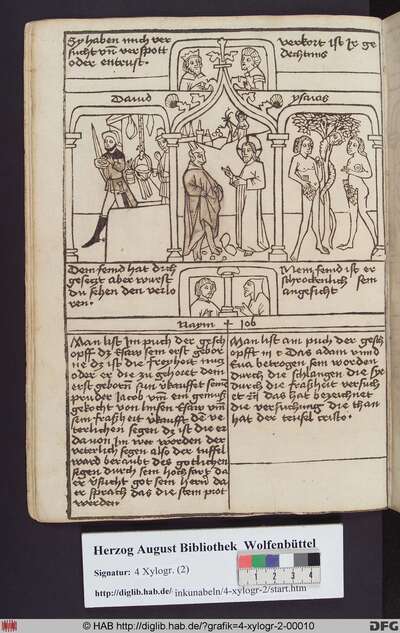 Sy haben mich ver
sucht vn̄ verspott
oder entrust.
verkort ist Ir ge
dechtnus
David
ysaias
Dein feind hat dich
gesegt aber wurst
du sehen den verlo
ren.
Mein feind ist er
schrockenlich sein
angesicht
Naym + Iob
Man list Im puch der gesch
opff dz Esaw sein erst gebor
ne dz ist die freyhait
oder er die zu gehort dem
erst geborn sun verkaufft seinē
pruder Iacob vm̄ ein gemuß
gekocht von linsen Esaw vm̄
sein fraßheit verkaufft dē ve
terlichen segen dz ist die er
da von Im wer worden der
veterlich segen also der tuffel
ward beraubt des gotlichen
segen durch sein hochfart da
er versucht got sein hern da
er sprach das die stein prot
werden.
Man list am puch der gesch
opff in c Das adam vnnd
Eva betrogen sein worden
durch die schlangen die sy
durch die fraßheit versuch
et das hat bezeichnet
die versuchung die than
hat der teufel cristo.
Herzog August Bibliothek Wolfenbüttel
Signatur: 4 Xylogr. (2)
http://diglib.hab.de/inkunabeln/4-xylogr-2/start.htm
© HAB http://diglib.hab.de/?grafik=4-xylogr-2-00010
DFG